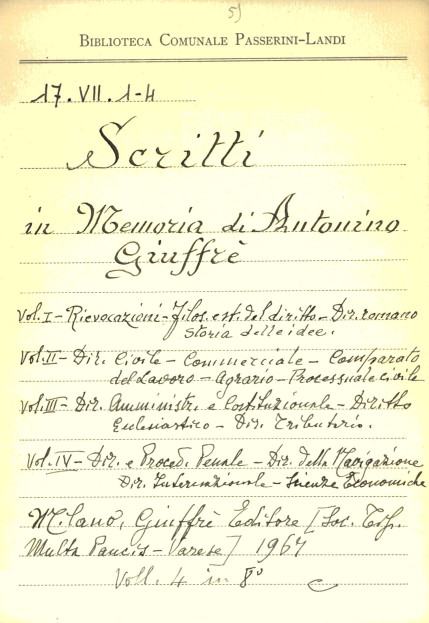 5)
BIBLIOTECA COMUNALE PASSERINI-LANDI
17.VII.1-4
Scritti
in Memoria di Antonino
Giuffrè
Vol. I - Rievocazioni - Filos. est. del diritto - Dir. romano
Storia delle idee.
Vol. II - Dir. Civile - Commerciale - Comparato
del Lavoro - Agrario - Processuale civile
Vol. III - Dir. Amministr. e Costituzionale - Diritto
Ecclesiastico - Dir. Tributario.
Vol. IV - Dir. e Proced. Penale - Dir. della Navigazione
Dir. Internazionale - Scienze Economiche
Milano, Giuffrè Editore [Soc. Tip.
Multa Paucis - Varese] 1967
Voll. 4 in 8°